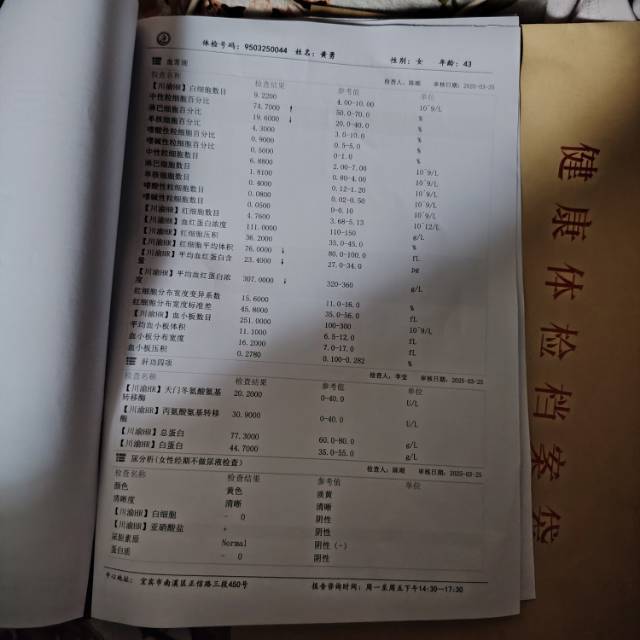 体检号码：9503250044 姓名：黄勇 性别：女 年龄：43
血常规 检查人：陈顺 审核日期：2025-03-25
检查名称 检查结果 参考值 单位
【川渝HR】白细胞数目 9.2200 4.00-10.00 10^9/L
中性粒细胞百分比 74.7000 ↑ 50.0-70.0 %
淋巴细胞百分比 19.6000 ↓ 20.0-40.0 %
单核细胞百分比 4.3000 3.0-10.0 %
嗜酸性粒细胞百分比 0.9000 0.5-5.0 %
嗜碱性粒细胞百分比 0.5000 0-1.0 %
中性粒细胞数目 6.8800 2.00-7.00 10^9/L
淋巴细胞数目 1.8100 0.80-4.00 10^9/L
单核细胞数目 0.4000 0.12-1.20 10^9/L
嗜酸性粒细胞数目 0.0800 0.02-0.50 10^9/L
嗜碱性粒细胞数目 0.0500 0-0.10 10^9/L
【川渝HR】红细胞数目 4.7600 3.68-5.13 10^12/L
【川渝HR】血红蛋白浓度 111.0000 110-150 g/L
【川渝HR】红细胞压积 36.2000 35.0-45.0 %
【川渝HR】红细胞平均体积 76.0000 ↓ 80.0-100.0 fL
【川渝HR】平均血红蛋白含 23.4000 ↓ 27.0-34.0 pg
量
【川渝HR】平均血红蛋白浓 307.0000 ↓ 320-360 g/L
度
红细胞分布宽度变异系数 15.6000 11.0-16.0 %
红细胞分布宽度标准差 45.8000 35.0-56.0 fL
【川渝HR】血小板数目 251.0000 100-300 10^9/L
平均血小板体积 11.1000 6.5-12.0 fL
血小板分布宽度 16.2000 7.0-17.0 fL
血小板压积 0.2780 0.100-0.282 %
肝功四项 检查人：李莹 审核日期：2025-03-25
检查名称 检查结果 参考值 单位
【川渝HR】天门冬氨酸氨基 20.2000 0-40.0 U/L
转移酶
【川渝HR】丙氨酸氨基转移 30.9000 0-40.0 U/L
酶
【川渝HR】总蛋白 77.3000 60.0-80.0 g/L
【川渝HR】白蛋白 44.7000 35.0-55.0 g/L
尿分析(女性经期不做尿液检查) 检查人：陈顺 审核日期：2025-03-25
检查名称 检查结果 参考值 单位
颜色 黄色 淡黄
清晰度 清晰 清晰
【川渝HR】白细胞 - 0 阴性
【川渝HR】亚硝酸盐 + 阴性
尿胆素原 Normal 阴性(-)
蛋白质 - 0 阴性
中心地址：宜宾市南溪区正信路三段450号 报告咨询时间：周一至周五下午14:30-17:30
健康体检档案袋